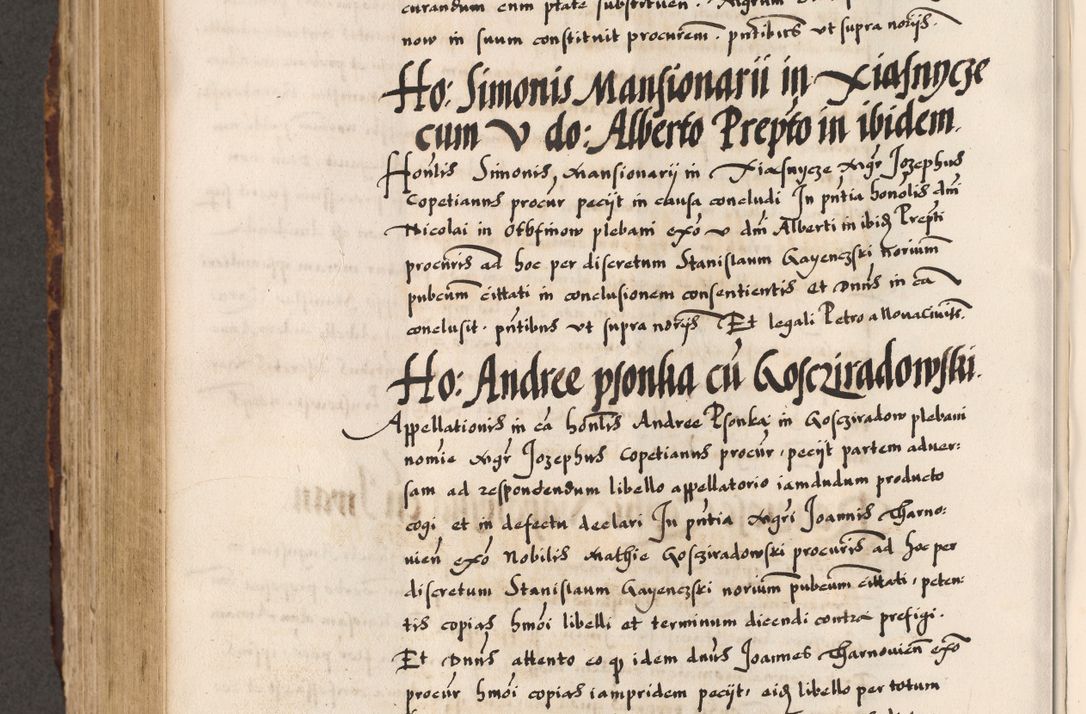 curandum cum ptate substituen. Mgrum
now in suum constituit procurem. pntibus ut supra norijs.
Ho: Simonis Mansionarii in Xiasnycze
cum V do: Alberto Prepto in ibidem.
Honlis Simonis, Mansionarij in Xiasnycze Mgr Jozephus
Copetianus procur pecijt in causa concludi In pntia honolis dni
Nicolai in plebani exo v dni Alberti in ibid Prepti
procuris ad hoc per discretum Stanislaum Gayenczski norium
pubcum cittati in conclusionem consentientis Et Dnus in ca
conclusit. pntibus ut supra norijs Et legali Petro a Novacivits.
Ho: Andree psonka cu Gosczradowski.
Appellationis in ca honlis Andree Psonka in Goscziradow plebani
nomie Mgr Jozephus Copetianus procur, pecijt partem adver:
sam ad respondendum libello appellatorio iamdudum producto
cogi et in defectu declari In pntia Mgri Joannis Tharno:
vien exo Nobilis Mathie Gosczradowski procuris ad hoc per
discretum Stanislaum Gayenczski norium pubcum cittati, peten:
tis copias hmoi libelli et terminum dicendi contra prefigi.
Et Dnus attento eo q idem dnus Joannes Tharnovien exo
procur hmoi copias iampridem pecijt, eid libello per totum